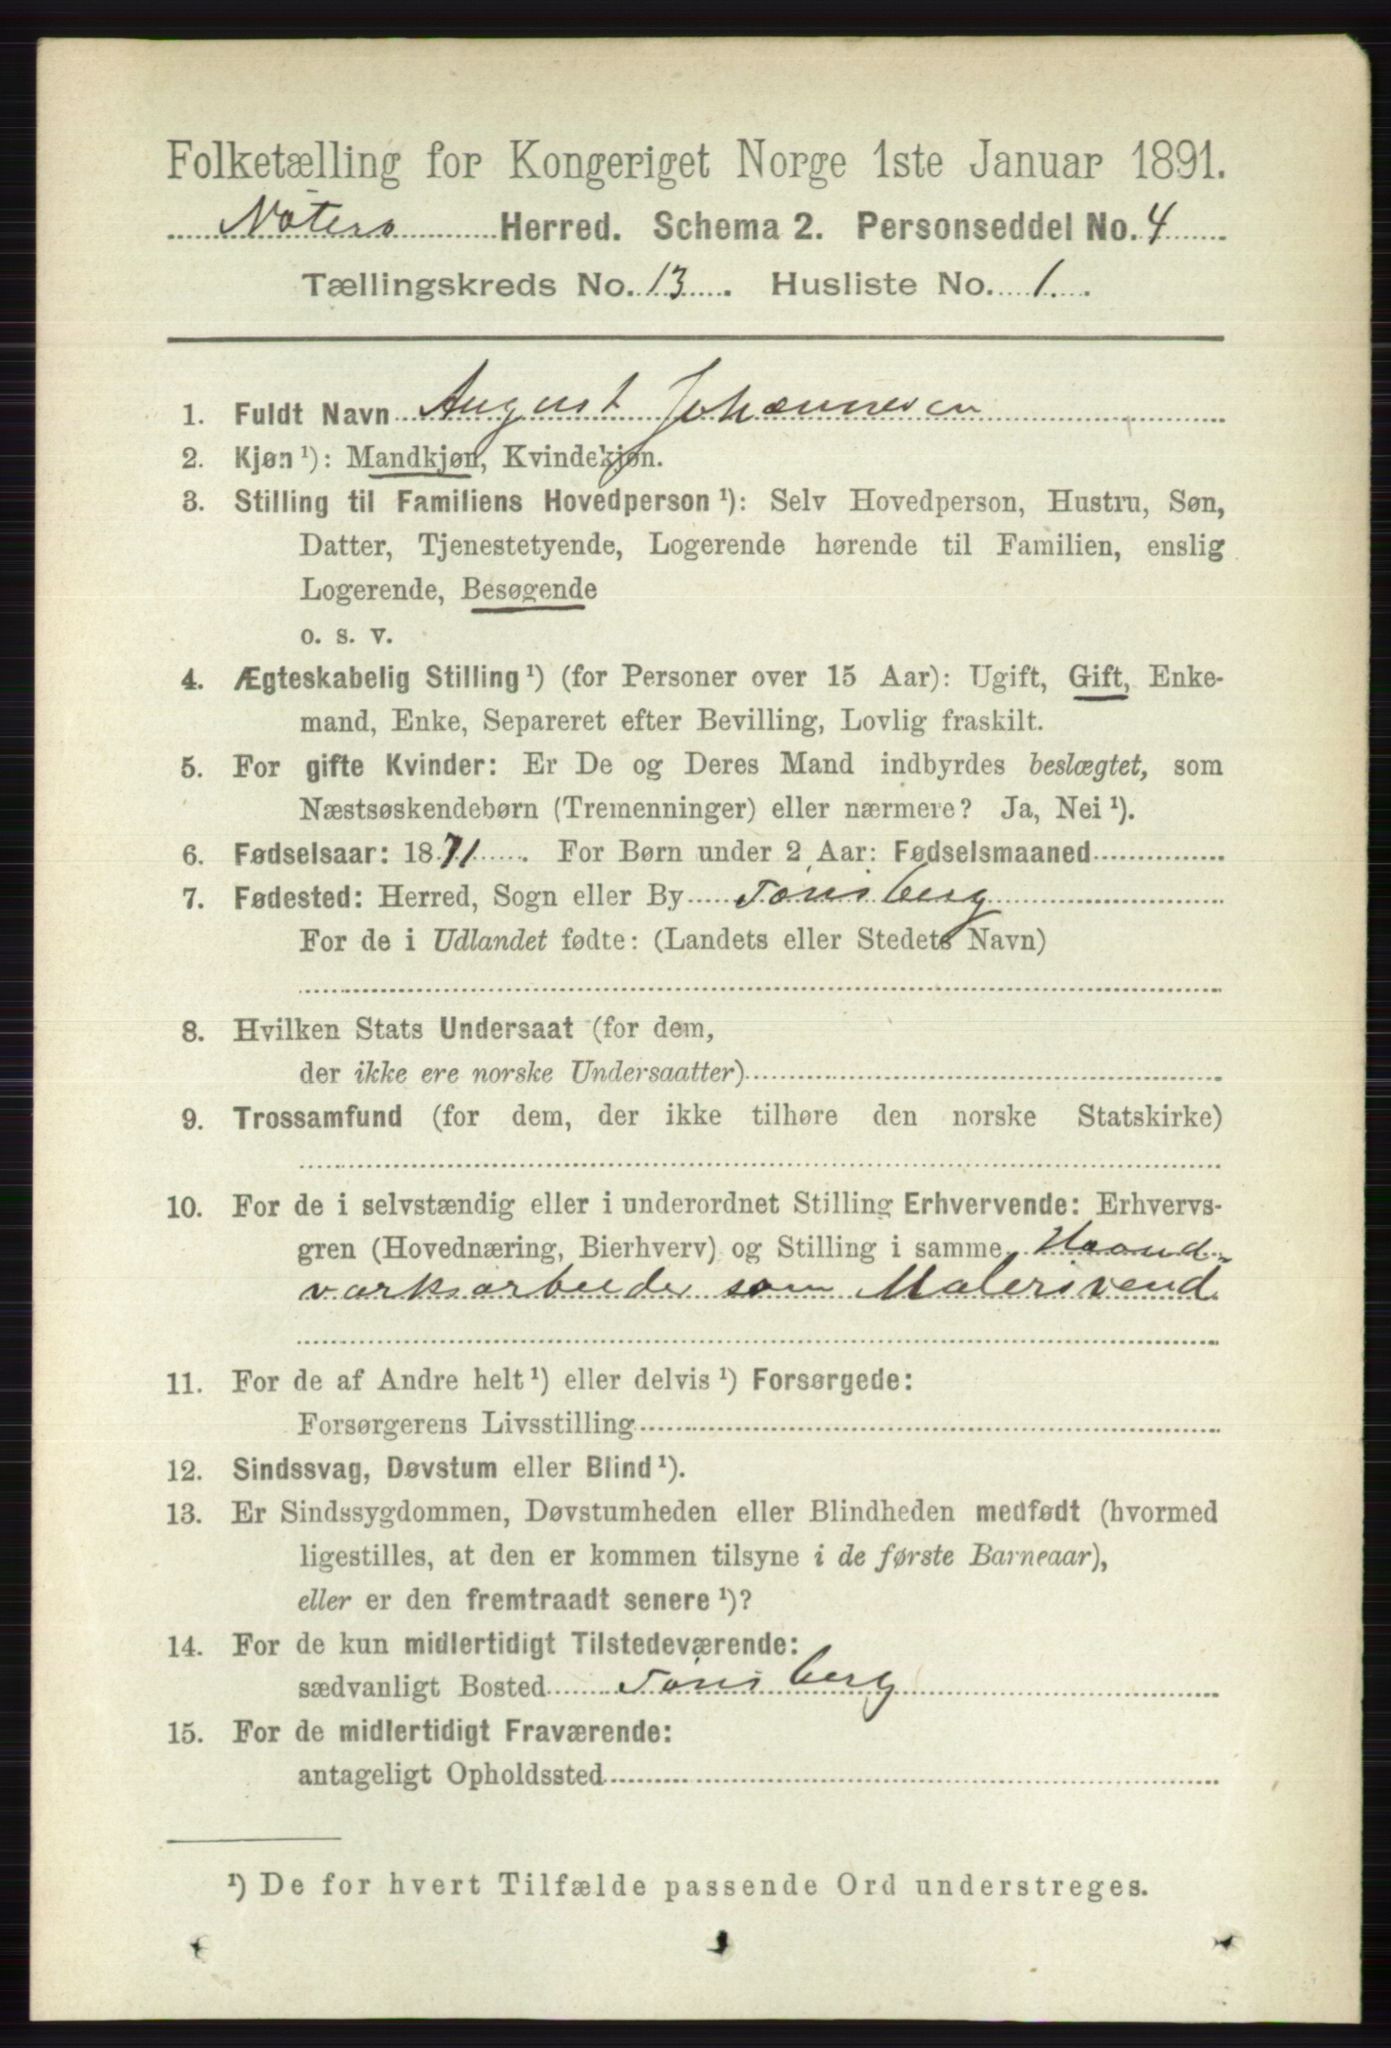 Folketælling for Kongeriget Norge 1ste Januar 1891.
Nøterø Herred. Schema 2. Personseddel No. 4
Tællingskreds No. 13. Husliste No. 1.
1. Fuldt Navn August Johannesen
2. Kjøn ¹): Mandkjøn, Kvindekjøn.
3. Stilling til Familiens Hovedperson ¹): Selv Hovedperson, Hustru, Søn,
Datter, Tjenestetyende, Logerende hørende til Familien, enslig
Logerende, Besøgende
o. s. v.
4. Ægteskabelig Stilling ¹) (for Personer over 15 Aar): Ugift, Gift, Enke-
mand, Enke, Separeret efter Bevilling, Lovlig fraskilt.
5. For gifte Kvinder: Er De og Deres Mand indbyrdes beslægtet, som
Næstsøskendebørn (Tremenninger) eller nærmere? Ja, Nei ¹).
6. Fødselsaar: 1871. For Børn under 2 Aar: Fødselsmaaned
7. Fødested: Herred, Sogn eller By Tønsberg
For de i Udlandet fødte: (Landets eller Stedets Navn)
8. Hvilken Stats Undersaat (for dem,
der ikke ere norske Undersaatter)
9. Trossamfund (for dem, der ikke tilhøre den norske Statskirke)
10. For de i selvstændig eller i underordnet Stilling Erhvervende: Erhvervs-
gren (Hovednæring, Bierhverv) og Stilling i samme Haand-
værksarbeider som Malersvend
11. For de af Andre helt ¹) eller delvis ¹) Forsørgede:
Forsørgerens Livsstilling
12. Sindssvag, Døvstum eller Blind ¹).
13. Er Sindssygdommen, Døvstumheden eller Blindheden medfødt (hvormed
ligestilles, at den er kommen tilsyne i de første Barneaar),
eller er den fremtraadt senere ¹)?
14. For de kun midlertidigt Tilstedeværende:
sædvanligt Bosted Tønsberg
15. For de midlertidigt Fraværende:
antageligt Opholdssted
¹) De for hvert Tilfælde passende Ord understreges.